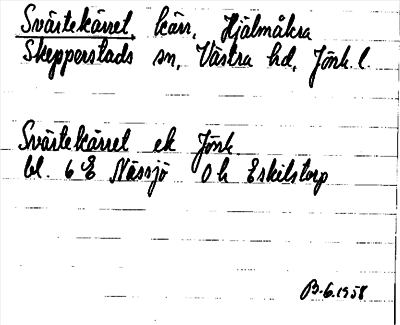 Svärtekärret, kärr, Hjälmåkra
Skepperstads sn, Västra hd, Jönk. l.
Svärtekärret ek Jönk
bl. 6 E Nässjö 0 h Eskilstorp
B. 6. 1958